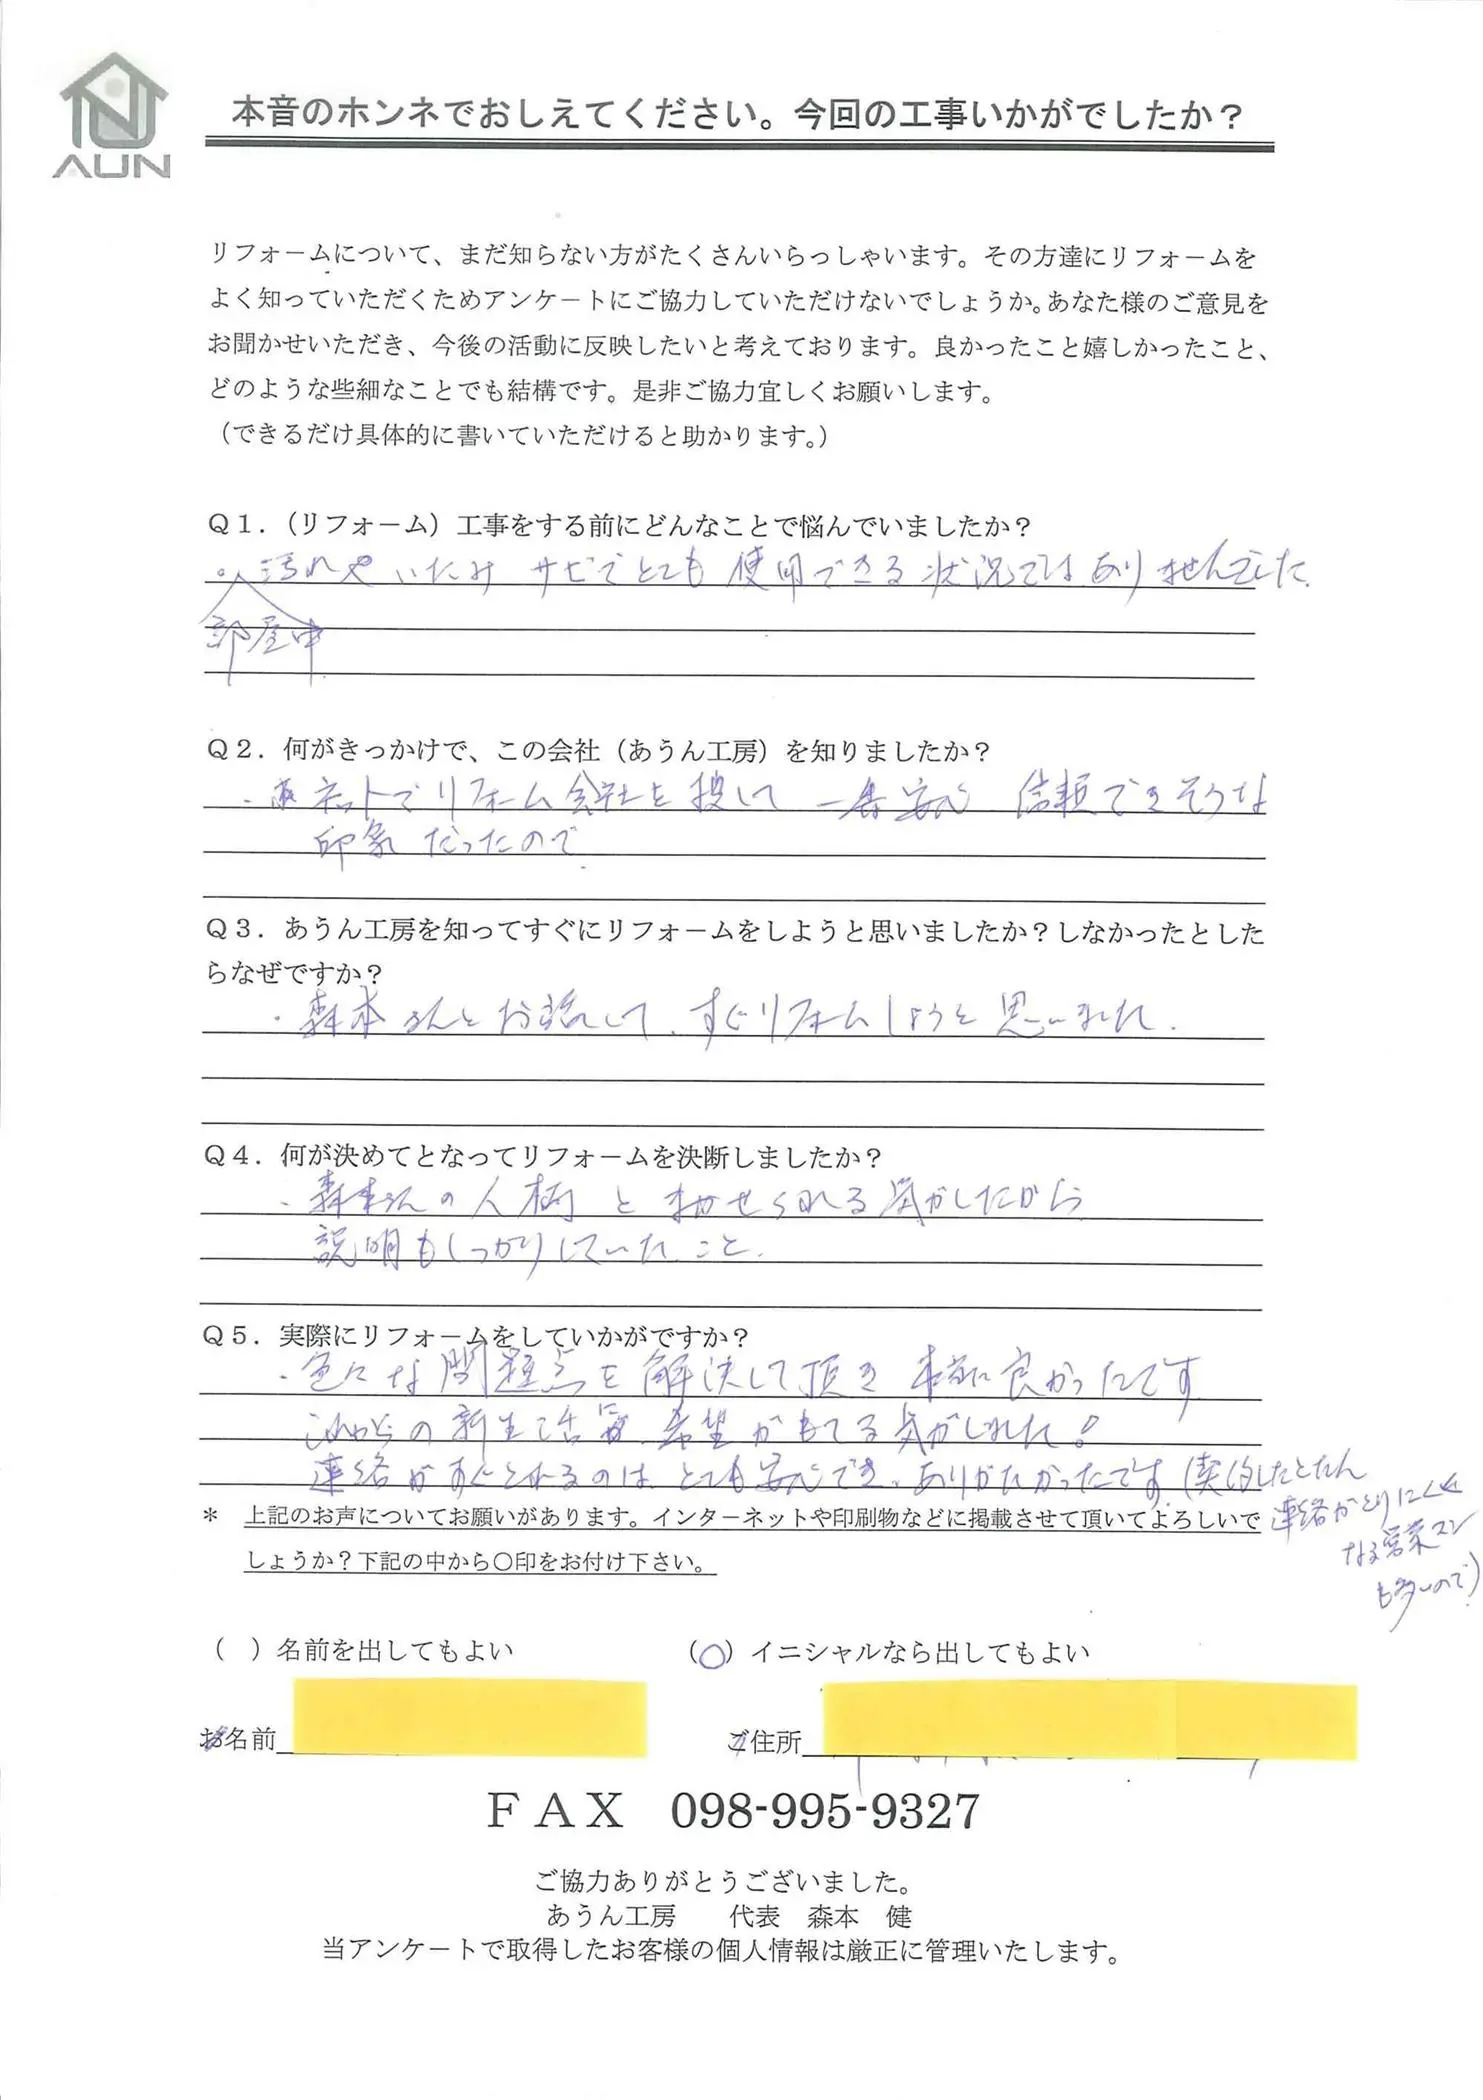 AUN
本音のホンネでおしえてください。今回の工事いかがでしたか？
リフォームについて、まだ知らない方がたくさんいらっしゃいます。その方達にリフォームを
よく知っていただくためアンケートにご協力していただけないでしょうか。あなた様のご意見を
お聞かせいただき、今後の活動に反映したいと考えております。良かったこと嬉しかったこと、
どのような些細なことでも結構です。是非ご協力宜しくお願いします。
（できるだけ具体的に書いていただけると助かります。）
Ｑ１．（リフォーム）工事をする前にどんなことで悩んでいましたか？
汚れやいたみ サビでとても 使用できる 状況ではありませんでした.
部屋中
Ｑ２．何がきっかけで、この会社（あうん工房）を知りましたか？
・ネットでリフォーム会社を捜して 一番安心 信頼できそうな
印象だったので
Ｑ３．あうん工房を知ってすぐにリフォームをしようと思いましたか？しなかったとした
らなぜですか？
・森本さんとお話して、すぐリフォームしようと思いました.
Ｑ４．何が決めてとなってリフォームを決断しましたか？
・森本さんの人柄と まかせられる気がしたから
説明もしっかりしていたこと.
Ｑ５．実際にリフォームをしていかがですか？
・色々な問題点を解決して頂き 本当に良かったです
これからの新生活に 希望がもてる気がしました！
連絡がすぐとれるのは、とても安心でき、ありがたかったです.（契約したとたん
連絡がとりにくく
なる営業マン
も多いので）
＊ 上記のお声についてお願いがあります。インターネットや印刷物などに掲載させて頂いてよろしいで
しょうか？下記の中から○印をお付け下さい。
（ ）名前を出してもよい （○）イニシャルなら出してもよい
お名前 ご住所
ＦＡＸ 098-995-9327
ご協力ありがとうございました。
あうん工房 代表 森本 健
当アンケートで取得したお客様の個人情報は厳正に管理いたします。